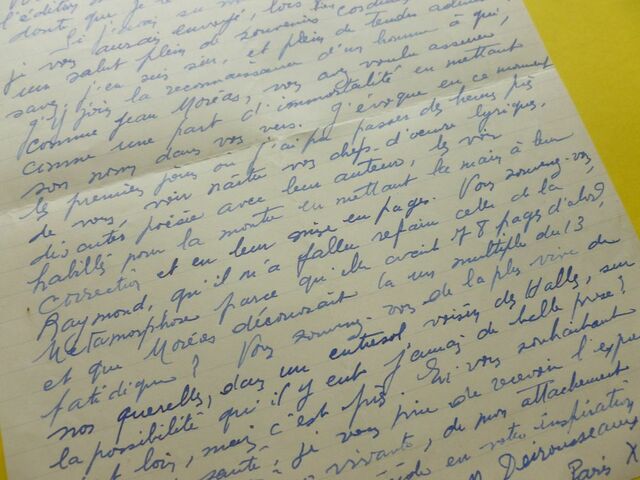 l'éditeur
dont que je
Si j'avais su
je vous aurais envoyé, lors
un salut plein de souvenirs cordiaux
savez, j'en suis sûr, et plein de tendre
Q'y joins la reconnaissance d'un homme à qui,
comme Jean Moréas, vous avez voulu assurer
comme une part d'immortalité en mettant
son nom dans vos vers. J'évoque en ce moment
les premiers jours où j'ai pu passer des heures près
de vous, voir naître vos chefs-d'œuvre lyriques,
dix autres poésie avec leur auteur, les voir
habillés pour la montre en mettant la main à leur
correction et en leur mise en pages. Vous souvenez-vous
Raymond, qu'il m'a fallu refaire celle de la
Métamorphose parce qu'elle avait 78 pages d'abord,
et que Moréas découvrait là un multiple du 13
fatidique? Vous souvenez-vous de la plus vive de
nos querelles, dans un entresol voisin des Halles, sur
la possibilité qu'il y eut jamais de belle prose?
loin, mais c'est près. En vous souhaitant
santé, je vous prie de recevoir l'expre
vivante, de mon attachement
en votre inspiration
Desrousseaux
Paris X